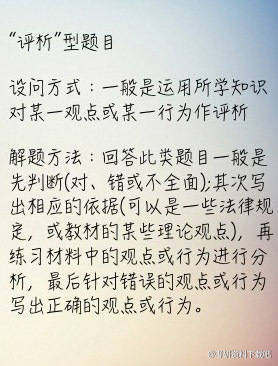 “评析”型题目
设问方式：一般是运用所学知识
对某一观点或某一行为作评析
解题方法：回答此类题目一般是
先判断(对、错或不全面);其次写
出相应的依据(可以是一些法律规
定，或教材的某些理论观点)，再
练习材料中的观点或行为进行分
析，最后针对错误的观点或行为
写出正确的观点或行为。